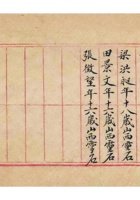 梁洪𣈶年十八歲山西靈石
田景文年十六歲山西靈石
張徵望年十六歲山西靈石